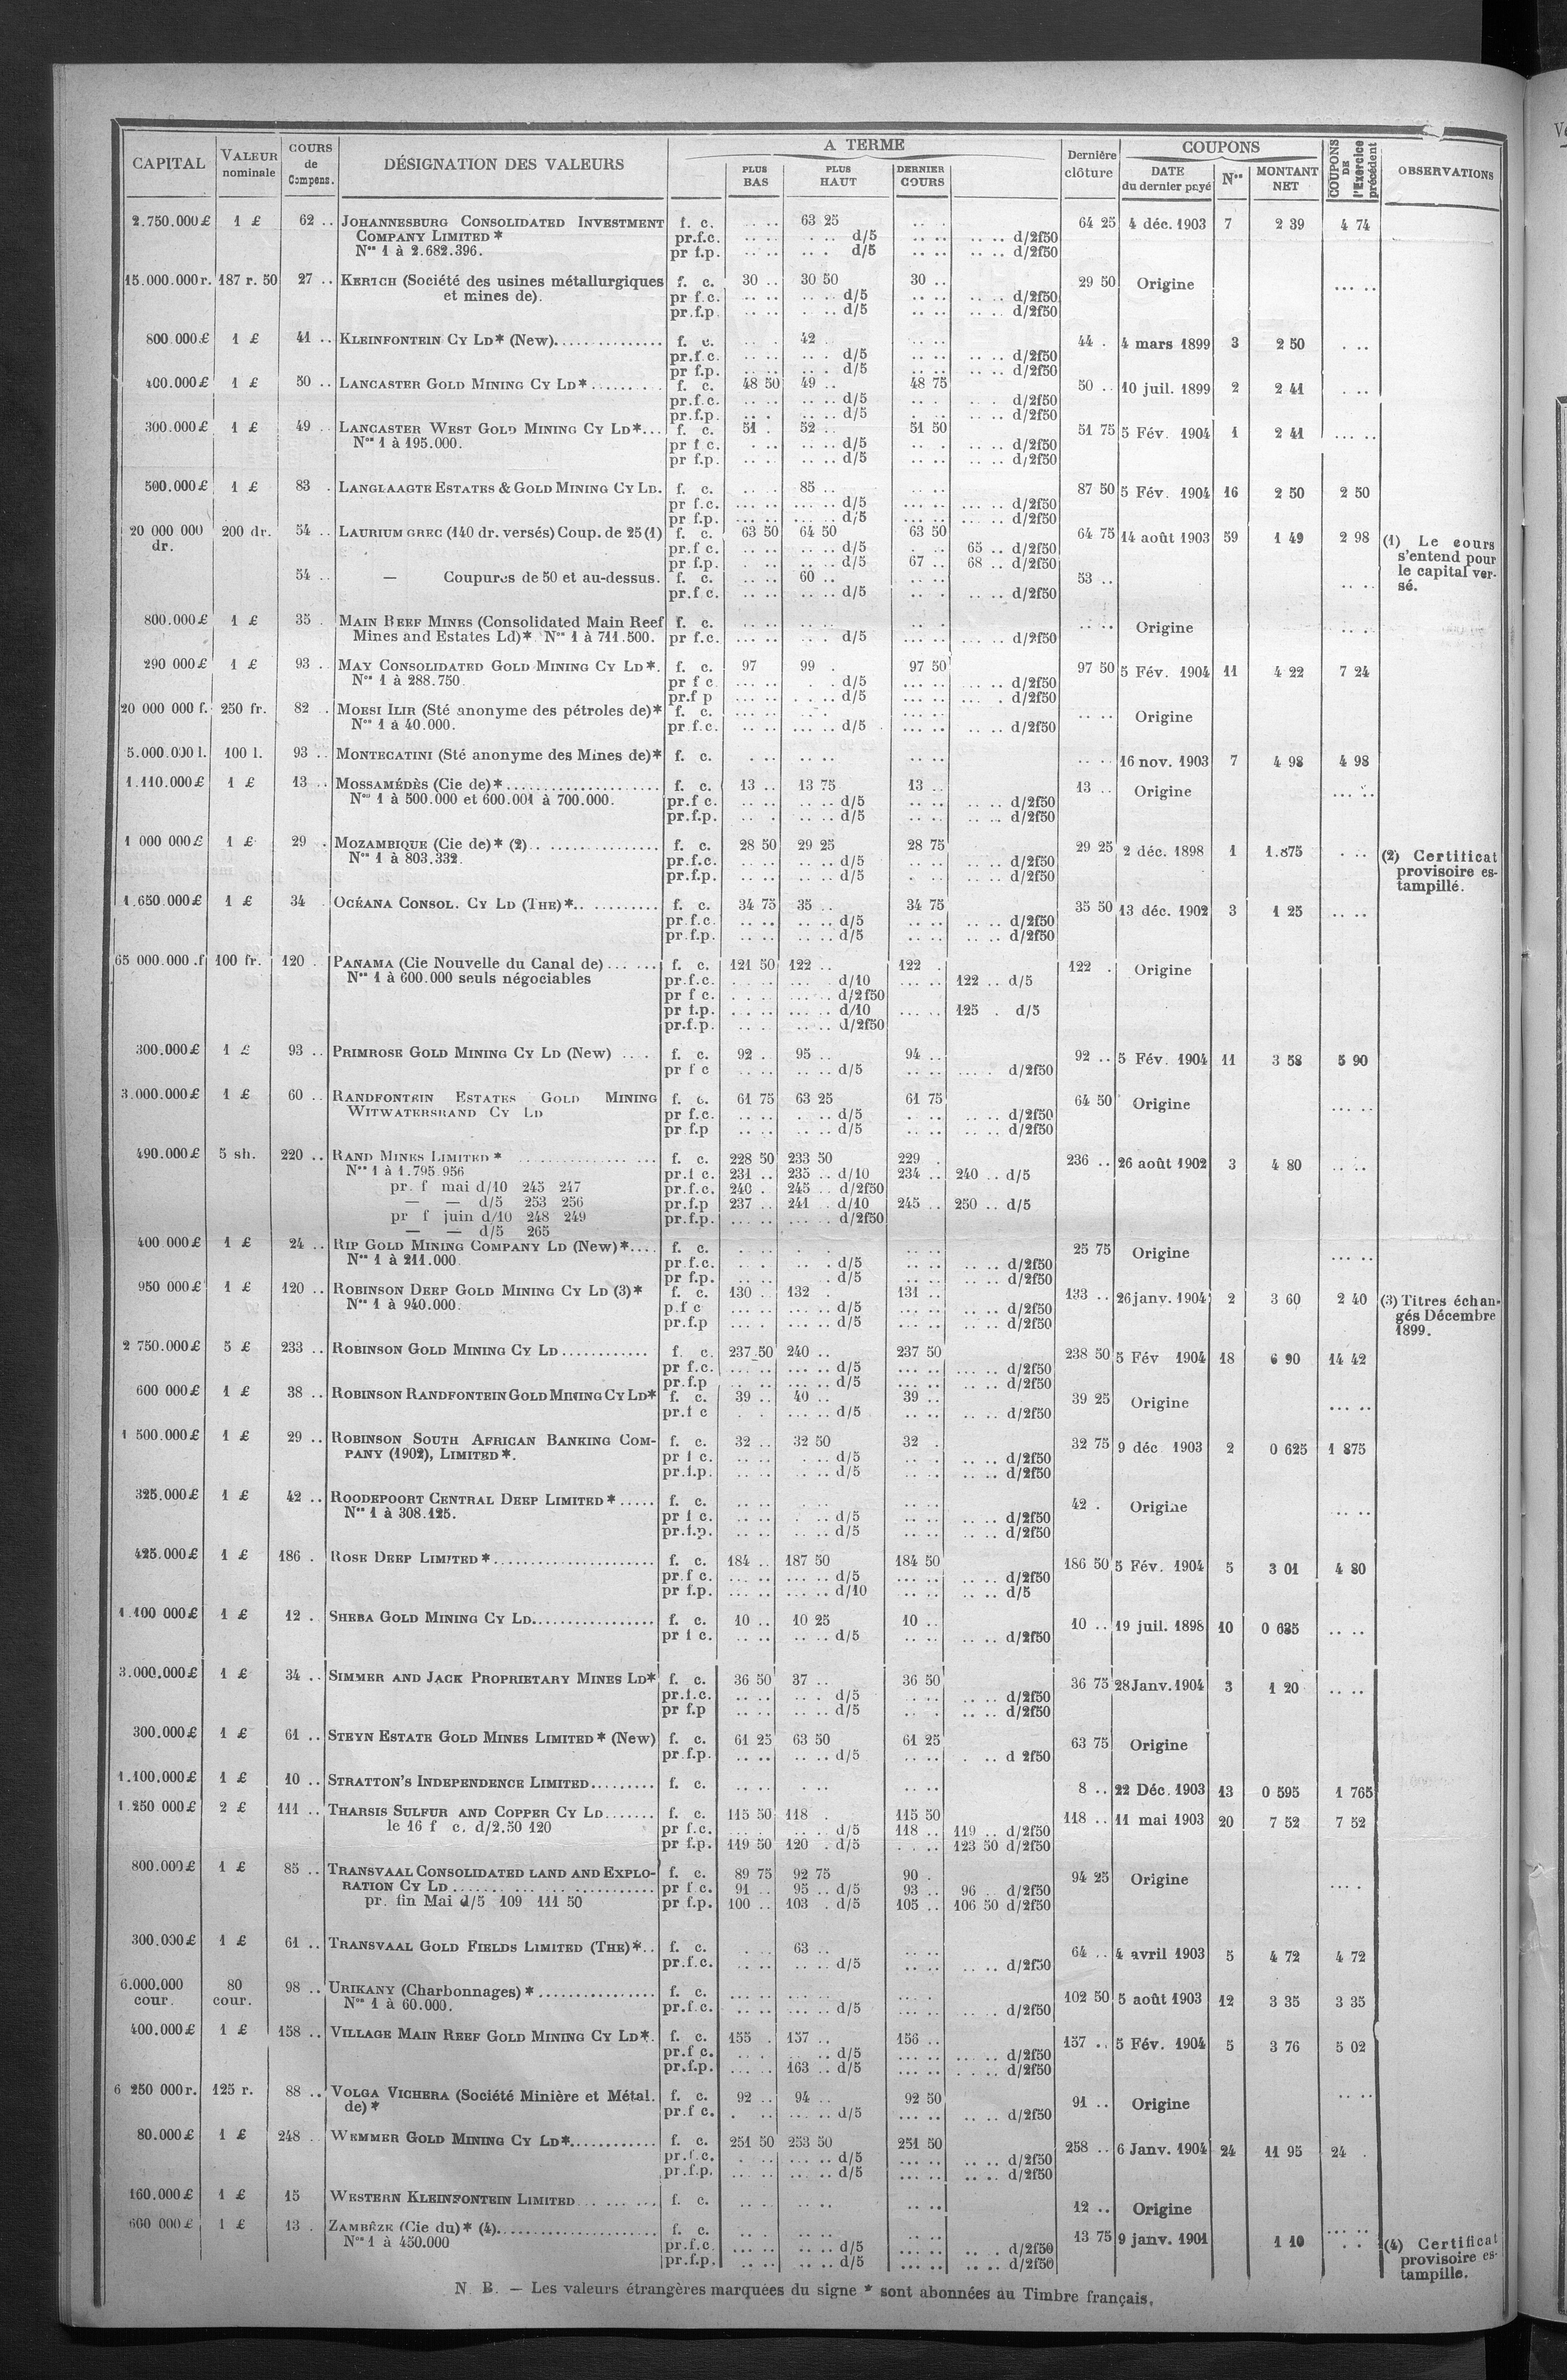 CAPITAL VALEUR nominale COURS de Compens. DÉSIGNATION DES VALEURS A TERME PLUS BAS PLUS HAUT DERNIER COURS Dernière clôture COUPONS DATE du dernier payé Nos MONTANT NET COUPONS DE l'Exercice précédent OBSERVATIONS
2.750.000£ 1 £ 62 .. JOHANNESBURG CONSOLIDATED INVESTMENT f. c. .. .. 63 25 .. . 64 25 4 déc. 1903 7 2 39 4 74
COMPANY LIMITED * pr.f.c. .. .. . .. d/5 .. .. .. .. d/2f50
Nos 1 à 2.682.396. pr f.p. .. .. .. . d/5 .. .. .. .. d/2f50
15.000.000r. 187 r. 50 27 .. KERTCH (Société des usines métallurgiques f. c. 30 .. 30 50 30 .. 29 50 Origine ... ..
et mines de). pr f.c. .. .. .. .. d/5 .. .. .. .. d/2f50
pr.f.p. .. .. .. .. d/5 .. .. .. .. d/2f50
800.000£ 1 £ 41 .. KLEINFONTEIN CY LD* (New)............... f. c. .. . 42 .. .. .. 44 . 4 mars 1899 3 2 50 . ..
pr.f.c. .. .. .. . d/5 .. .. .. .. d/2f50
pr f.p. .. .. .. . d/5 .. .. .. .. d/2f50
400.000£ 1 £ 50 .. LANCASTER GOLD MINING CY LD*.......... f. c. 48 50 49 .. 48 75 50 .. 10 juil. 1899 2 2 41 . ..
pr.f.c. .. .. .. .. d/5 .. . . .. d/2f50
pr.f.p. .. . .. .. d/5 . .. .. .. d/2f50
300.000£ 1 £ 49 .. LANCASTER WEST GOLD MINING CY LD*... f. c. 51 . 52 .. 51 50 51 75 5 Fév. 1904 1 2 41 ... ..
Nos 1 à 195.000. pr f c. . .. .. .. d/5 .. .. .. .. d/2f50
pr f.p. .. .. .. .. d/5 .. .. .. .. d/2f50
500.000£ 1 £ 83 . LANGLAAGTE ESTATES & GOLD MINING CY LD. f. c. .. . 85 .. .. .. 87 50 5 Fév. 1904 16 2 50 2 50
pr f.c. ... .. ... .. d/5 ... .. ... .. d/2f50
pr f.p. ... .. ... .. d/5 .. .. .. .. d/2f50
20 000 000 200 dr. 54 .. LAURIUM GREC (140 dr. versés) Coup. de 25 (1) f. c. 63 50 64 50 63 50 64 75 14 août 1903 59 1 49 2 98 (1) Le cours
dr. pr.f c. .. .. .. .. d/5 . .. 65 .. d/2f50 s'entend pour
pr f.p. .. .. .. .. d/5 67 .. 68 .. d/2f50 le capital ver-
54 .. — Coupures de 50 et au-dessus. f. c. .. .. 60 .. .. .. 53 .. .. .. sé.
pr.f.c. .. .. .. .. d/5 .. .. .. .. d/2f50
800.000£ 1 £ 35 . MAIN REEF MINES (Consolidated Main Reef f. c. .. .. .. .. .. . .. .. Origine .. ..
Mines and Estates Ld)* Nos 1 à 711.500. pr f.c. ... .. . .. d/5 ... .. ... .. d/2f50
290 000£ 1 £ 93 . MAY CONSOLIDATED GOLD MINING CY LD*. f. c. 97 99 . 97 50 97 50 5 Fév. 1904 11 4 22 7 24
Nos 1 à 288.750. pr f c. ... .. . .. d/5 ... .. .. .. d/2f50
pr.f p ... .. . .. d/5 ... .. ... . d/2f50
20 000 000 f. 250 fr. 82 .. MOESI ILIR (Sté anonyme des pétroles de)* f. c. .. .. .. . .. .. .. .. Origine
Nos 1 à 40.000. pr.f.c. .. .. ... .. d/5 ... .. .. .. d/2f50
5.000.000 l. 100 l. 93 .. MONTECATINI (Sté anonyme des Mines de)* f. c. . .. .. .. .. .. .. .. 16 nov. 1903 7 4 98 4 98
1.110.000£ 1 £ 13 .. MOSSAMÉDÈS (Cie de)*..................... f. c. 13 .. 13 75 13 .. 13 .. Origine ... ..
Nos 1 à 500.000 et 600.001 à 700.000. pr.f c. .. .. .. .. d/5 .. .. .. .. d/2f50
pr.f.p. .. .. .. .. d/5 .. .. .. .. d/2f50
1 000 000£ 1 £ 29 . MOZAMBIQUE (Cie de)* (2)................. f. c. 28 50 29 25 28 75 29 25 2 déc. 1898 1 1.875 . .. (2) Certificat
Nos 1 à 803.332. pr.f.c. .. .. .. .. d/5 .. .. .. .. d/2f50 provisoire es-
pr.f.p. .. .. .. .. d/5 . .. .. .. d/2f50 tampillé.
1.650.000£ 1 £ 34 OCÉANA CONSOL. CY LD (THE)*............ f. c. 34 75 35 .. 34 75 35 50 13 déc. 1902 3 1 25 .. ..
pr.f.c. .. .. .. .. d/5 .. .. .. .. d/2f50
pr.f.p. .. .. .. .. d/5 .. .. .. .. d/2f50
65 000.000 .f 100 fr. 120 .. PANAMA (Cie Nouvelle du Canal de)... ... f. c. 121 50 122 .. 122 . 122 . Origine
Nos 1 à 600.000 seuls négociables pr.f.c. . .. ... .. d/10 ... .. 122 .. d/5
pr f c. . .. ... .. d/2f50
pr f.p. . .. .. ... .. d/10 ... .. 125 . d/5
pr.f.p. .. .. .. .. d/2f50
300.000£ 1 £ 93 .. PRIMROSE GOLD MINING CY LD (New) .... f. c. 92 .. 95 .. 94 .. 92 .. 5 Fév. 1904 11 3 58 5 90
pr f c .. .. .. .. d/5 .. .. .. . d/2f50
3.000.000£ 1 £ 60 .. RANDFONTEIN ESTATES GOLD MINING f. c. 61 75 63 25 61 75 64 50 Origine ... ..
WITWATERSRAND CY LD pr f.c. .. .. . .. d/5 . .. .. .. d/2f50
pr f.p .. .. . .. d/5 . .. .. .. d/2f50
490.000£ 5 sh. 220 .. RAND MINES LIMITED* .................. f. c. 228 50 233 50 229 . 236 .. 26 août 1902 3 4 80 .. ..
Nos 1 à 1.795.956 pr.f c. 231 .. 235 .. d/10 234 .. 240 .. d/5
pr. f mai d/10 245 247 pr.f.c. 240 . 245 .. d/2f50
— — d/5 253 256 pr.f.p 237 .. 241 .. d/10 245 .. 250 .. d/5
pr f juin d/10 248 249 pr.f.p. ... .. ... .. d/2f50
— — d/5 265
400 000£ 1 £ 24 .. RIP GOLD MINING COMPANY LD (New)*.... f. c. . .. . . .. .. 25 75 Origine ... ..
Nos 1 à 211.000. pr f.c. .. . . .. d/5 .. .. .. .. d/2f50
pr f.p. .. .. .. . d/5 .. .. .. .. d/2f50
950 000£ 1 £ 120 .. ROBINSON DEEP GOLD MINING CY LD (3)* f. c. 130 .. 132 . 131 .. 133 .. 26 janv. 1904 2 3 60 2 40 (3) Titres échan-
Nos 1 à 940.000. p.f c ... .. ... .. d/5 ... .. .. .. d/2f50 gés Décembre
pr.f.p ... .. ... .. d/5 ... .. .. .. d/2f50 1899.
2 750.000£ 5 £ 233 .. ROBINSON GOLD MINING CY LD............ f. c. 237 50 240 .. 237 50 238 50 5 Fév 1904 18 6 90 14 42
pr f.c. ... .. ... .. d/5 ... .. ... .. d/2f50
pr.f.p .. .. ... .. d/5 ... .. .. .. d/2f50
600 000£ 1 £ 38 .. ROBINSON RANDFONTEIN GOLD MINING CY LD* f. c. 39 .. 40 .. 39 .. 39 25 Origine ... ..
pr.f c . . ... .. d/5 .. .. .. .. d/2f50
1 500.000£ 1 £ 29 .. ROBINSON SOUTH AFRICAN BANKING COM- f. c. 32 .. 32 50 32 . 32 75 9 déc 1903 2 0 625 1 875
PANY (1902), LIMITED*. pr f c. .. .. . .. d/5 .. .. .. .. d/2f50
pr.f.p. .. .. . .. d/5 .. .. .. .. d/2f50
325.000£ 1 £ 42 .. ROODEPOORT CENTRAL DEEP LIMITED*..... f. c. .. .. .. .. .. .. 42 . Origine .. ..
Nos 1 à 308.125. pr f c. .. .. . .. d/5 .. .. .. .. d/2f50
pr.f.p. .. .. . .. d/5 .. .. .. .. d/2f50
425.000£ 1 £ 186 . ROSE DEEP LIMITED*...................... f. c. 184 .. 187 50 184 50 186 50 5 Fév. 1904 5 3 01 4 80
pr.f c. ... .. ... .. d/5 ... .. .. .. d/2f50
pr f.p. ... .. ... .. d/10 .. .. .. .. d/5
1.100 000£ 1 £ 12 . SHEBA GOLD MINING CY LD................. f. c. 10 .. 10 25 10 .. 10 .. 19 juil. 1898 10 0 635 .. ..
pr f c. .. .. .. .. d/5 .. .. .. .. d/2f50
3.000.000£ 1 £ 34 .. SIMMER AND JACK PROPRIETARY MINES LD* f. c. 36 50 37 .. 36 50 36 75 28 Janv. 1904 3 1 20 .. ..
pr.f.c. .. .. .. . d/5 .. .. .. .. d/2f50
pr f.p .. .. .. .. d/5 .. . .. .. d/2f50
300.000£ 1 £ 61 .. STEYN ESTATE GOLD MINES LIMITED* (New) f. c. 61 25 63 50 61 25 63 75 Origine
pr.f.p. .. .. .. .. d/5 .. .. . .. d 2f50
1.100.000£ 1 £ 10 .. STRATTON'S INDEPENDENCE LIMITED......... f. c. .. .. .. .. .. .. 8 .. 22 Déc. 1903 13 0 595 1 765
1.250 000£ 2 £ 111 .. THARSIS SULFUR AND COPPER CY LD....... f. c. 115 50 118 . 115 50 118 .. 11 mai 1903 20 7 52 7 52
le 16 f c. d/2.50 120 pr f.c. ... . .. .. d/5 118 .. 119 .. d/2f50
pr f.p. 119 50 120 . d/5 . .. 123 50 d/2f50
800.000£ 1 £ 85 .. TRANSVAAL CONSOLIDATED LAND AND EXPLO- f. c. 89 75 92 75 90 . 94 25 Origine ... .
RATION CY LD............................ pr f.c. 91 .. 95 .. d/5 93 .. 96 .. d/2f50
pr. fin Mai d/5 109 111 50 pr f.p. 100 .. 103 . d/5 105 .. 106 50 d/2f50
300.000£ 1 £ 61 .. TRANSVAAL GOLD FIELDS LIMITED (THE)*.. f. c. . .. 63 .. .. .. 64 .. 4 avril 1903 5 4 72 4 72
pr.f.c. .. .. .. .. d/5 .. .. .. .. d/2f50
6.000.000 80 98 .. URIKANY (Charbonnages)*................ f. c. ... .. ... .. ... . 102 50 5 août 1903 12 3 35 3 35
cour. cour. Nos 1 à 60.000. pr.f.c. .. .. ... .. d/5 ... .. .. .. d/2f50
400.000£ 1 £ 158 .. VILLAGE MAIN REEF GOLD MINING CY LD*. f. c. 155 . 157 .. 156 .. 157 .. 5 Fév. 1904 5 3 76 5 02
pr.f c. .. . . .. d/5 ... .. ... .. d/2f50
pr.f.p. ... .. 163 .. d/5 ... .. . .. d/2f50
6 250 000r. 125 r. 88 .. VOLGA VICHERA (Société Minière et Métal. f. c. 92 .. 94 .. 92 50 91 .. Origine .. ..
de)* pr.f c. . .. ... .. d/5 ... .. .. .. d/2f50
80.000£ 1 £ 248 . WEMMER GOLD MINING CY LD*............ f. c. 251 50 253 50 251 50 258 .. 6 Janv. 1904 24 11 95 24 .
pr.f.c. . .. ... .. d/5 ... .. .. .. d/2f50
pr.f.p. .. .. ... .. d/5 ... .. .. .. d/2f50
160.000£ 1 £ 15 WESTERN KLEINFONTEIN LIMITED.......... f. c. .. .. .. .. .. .. 12 .. Origine
600 000£ 1 £ 13 . ZAMBÈZE (Cie du)* (4)..................... f. c. .. .. .. .. .. .. 13 75 9 janv. 1901 1 10 ... .. (4) Certificat
Nos 1 à 450.000 pr.f.c. ... .. .. .. d/5 ... .. .. . d/2f50 provisoire es-
pr.f.p. .. .. .. .. d/5 ... .. .. .. d/2f50 tampille.
N. B. — Les valeurs étrangères marquées du signe * sont abonnées au Timbre français.